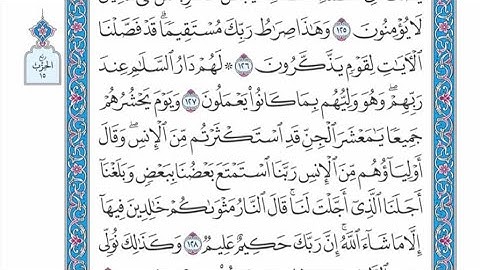 لَا يُؤْمِنُونَ ١٢٥ وَهَٰذَا صِرَٰطُ رَبِّكَ مُسْتَقِيمًا ۗ قَدْ فَصَّلْنَا
ٱلْءَايَٰتِ لِقَوْمٍ يَذَّكَّرُونَ ١٢٦ ۞ لَهُمْ دَارُ ٱلسَّلَٰمِ عِندَ
رَبِّهِمْ ۖ وَهُوَ وَلِيُّهُم بِمَا كَانُوا۟ يَعْمَلُونَ ١٢٧ وَيَوْمَ يَحْشُرُهُمْ
جَمِيعًا يَٰمَعْشَرَ ٱلْجِنِّ قَدِ ٱسْتَكْثَرْتُم مِّنَ ٱلْإِنسِ ۖ وَقَالَ
أَوْلِيَآؤُهُم مِّنَ ٱلْإِنسِ رَبَّنَا ٱسْتَمْتَعَ بَعْضُنَا بِبَعْضٍ وَبَلَغْنَآ
أَجَلَنَا ٱلَّذِىٓ أَجَّلْتَ لَنَا ۚ قَالَ ٱلنَّارُ مَثْوَىٰكُمْ خَٰلِدِينَ فِيهَآ
إِلَّا مَا شَآءَ ٱللَّهُ ۗ إِنَّ رَبَّكَ حَكِيمٌ عَلِيمٌ ١٢٨ وَكَذَٰلِكَ نُوَلِّى
ربع
الحزب
١٥